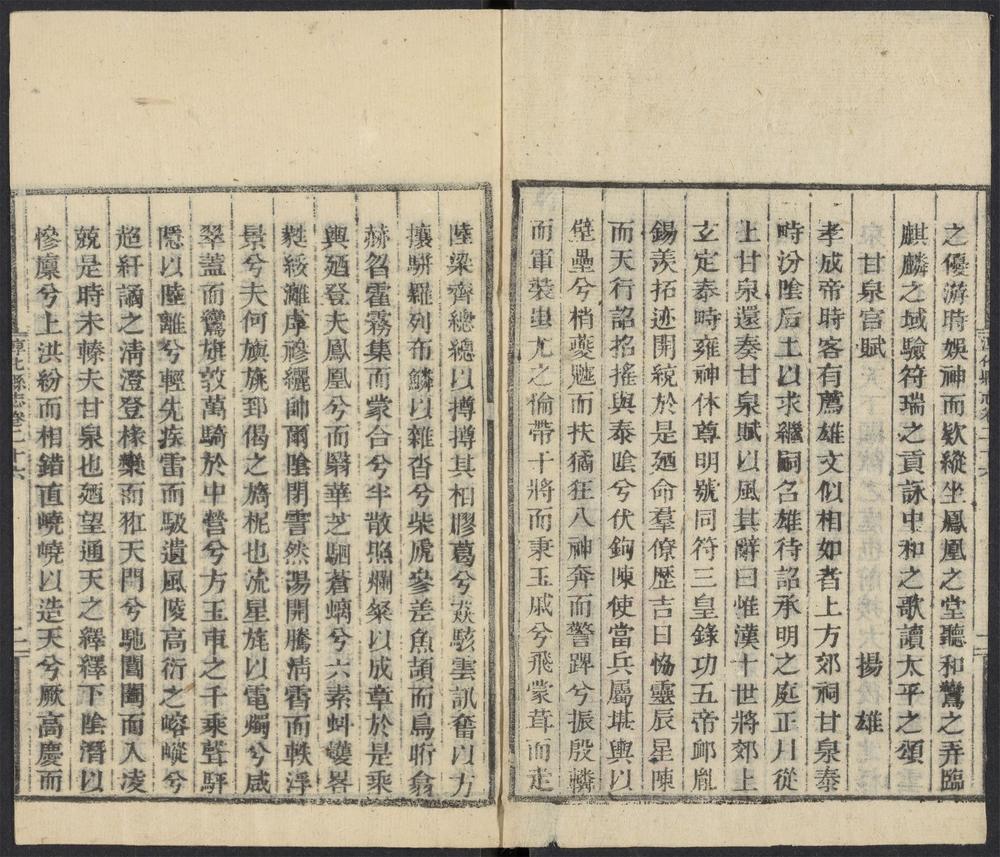 之優游時娛神而欵縱坐鳳凰之堂聽和鸞之弄臨
麒麟之域驗符瑞之貢詠中和之歌讀太平之頌
甘泉宮賦 揚雄
孝成帝時客有薦雄文似相如者上方郊祠甘泉泰
畤汾陰后土以求繼嗣召雄待詔承明之庭正月從
上甘泉還奏甘泉賦以風其辭曰惟漢十世將郊上
玄定泰畤雍神休尊明號同符三皇錄功五帝卹胤
錫羨拓迹開統於是廼命羣僚歷吉日恊靈辰星陳
而天行詔招搖與泰陰兮伏鉤陳使當兵屬堪輿以
壁壘兮梢夔魖而抶獝狂八神奔而警蹕兮振殷轔
而軍裝蚩尤之倫帶干將而秉玉戚兮飛蒙茸而走
陸梁齊總總以撙撙其相膠葛兮猋駭雲訊奮以方
攘騈羅列布鱗以雜沓兮柴虒參差魚頡而鳥䀪翕
赫曶霍霧集而蒙合兮半散照爛粲以成章於是乘
輿廼登夫鳳凰兮而翳華芝駟蒼螭兮六素虯蠖畧
蕤綏灕虖襂纚帥爾陰閉霅然陽開騰清霄而軼浮
景兮夫何旟旐郅偈之旖柅也流星旄以電燭兮咸
翠蓋而鸞旗敦萬騎於中營兮方玉車之千乘聲駍
隱以陸離兮輕先疾雷而馺遺風陵高衍之嵱嵷兮
超紆譎之淸澄登椽欒而羾天門兮馳閶闔而入凌
兢是時未轃夫甘泉也廼望通天之繹繹下陰潛以
慘廩兮上洪紛而相錯直嶢嶢以造天兮厥高慶而
淳化縣志卷二十六 二